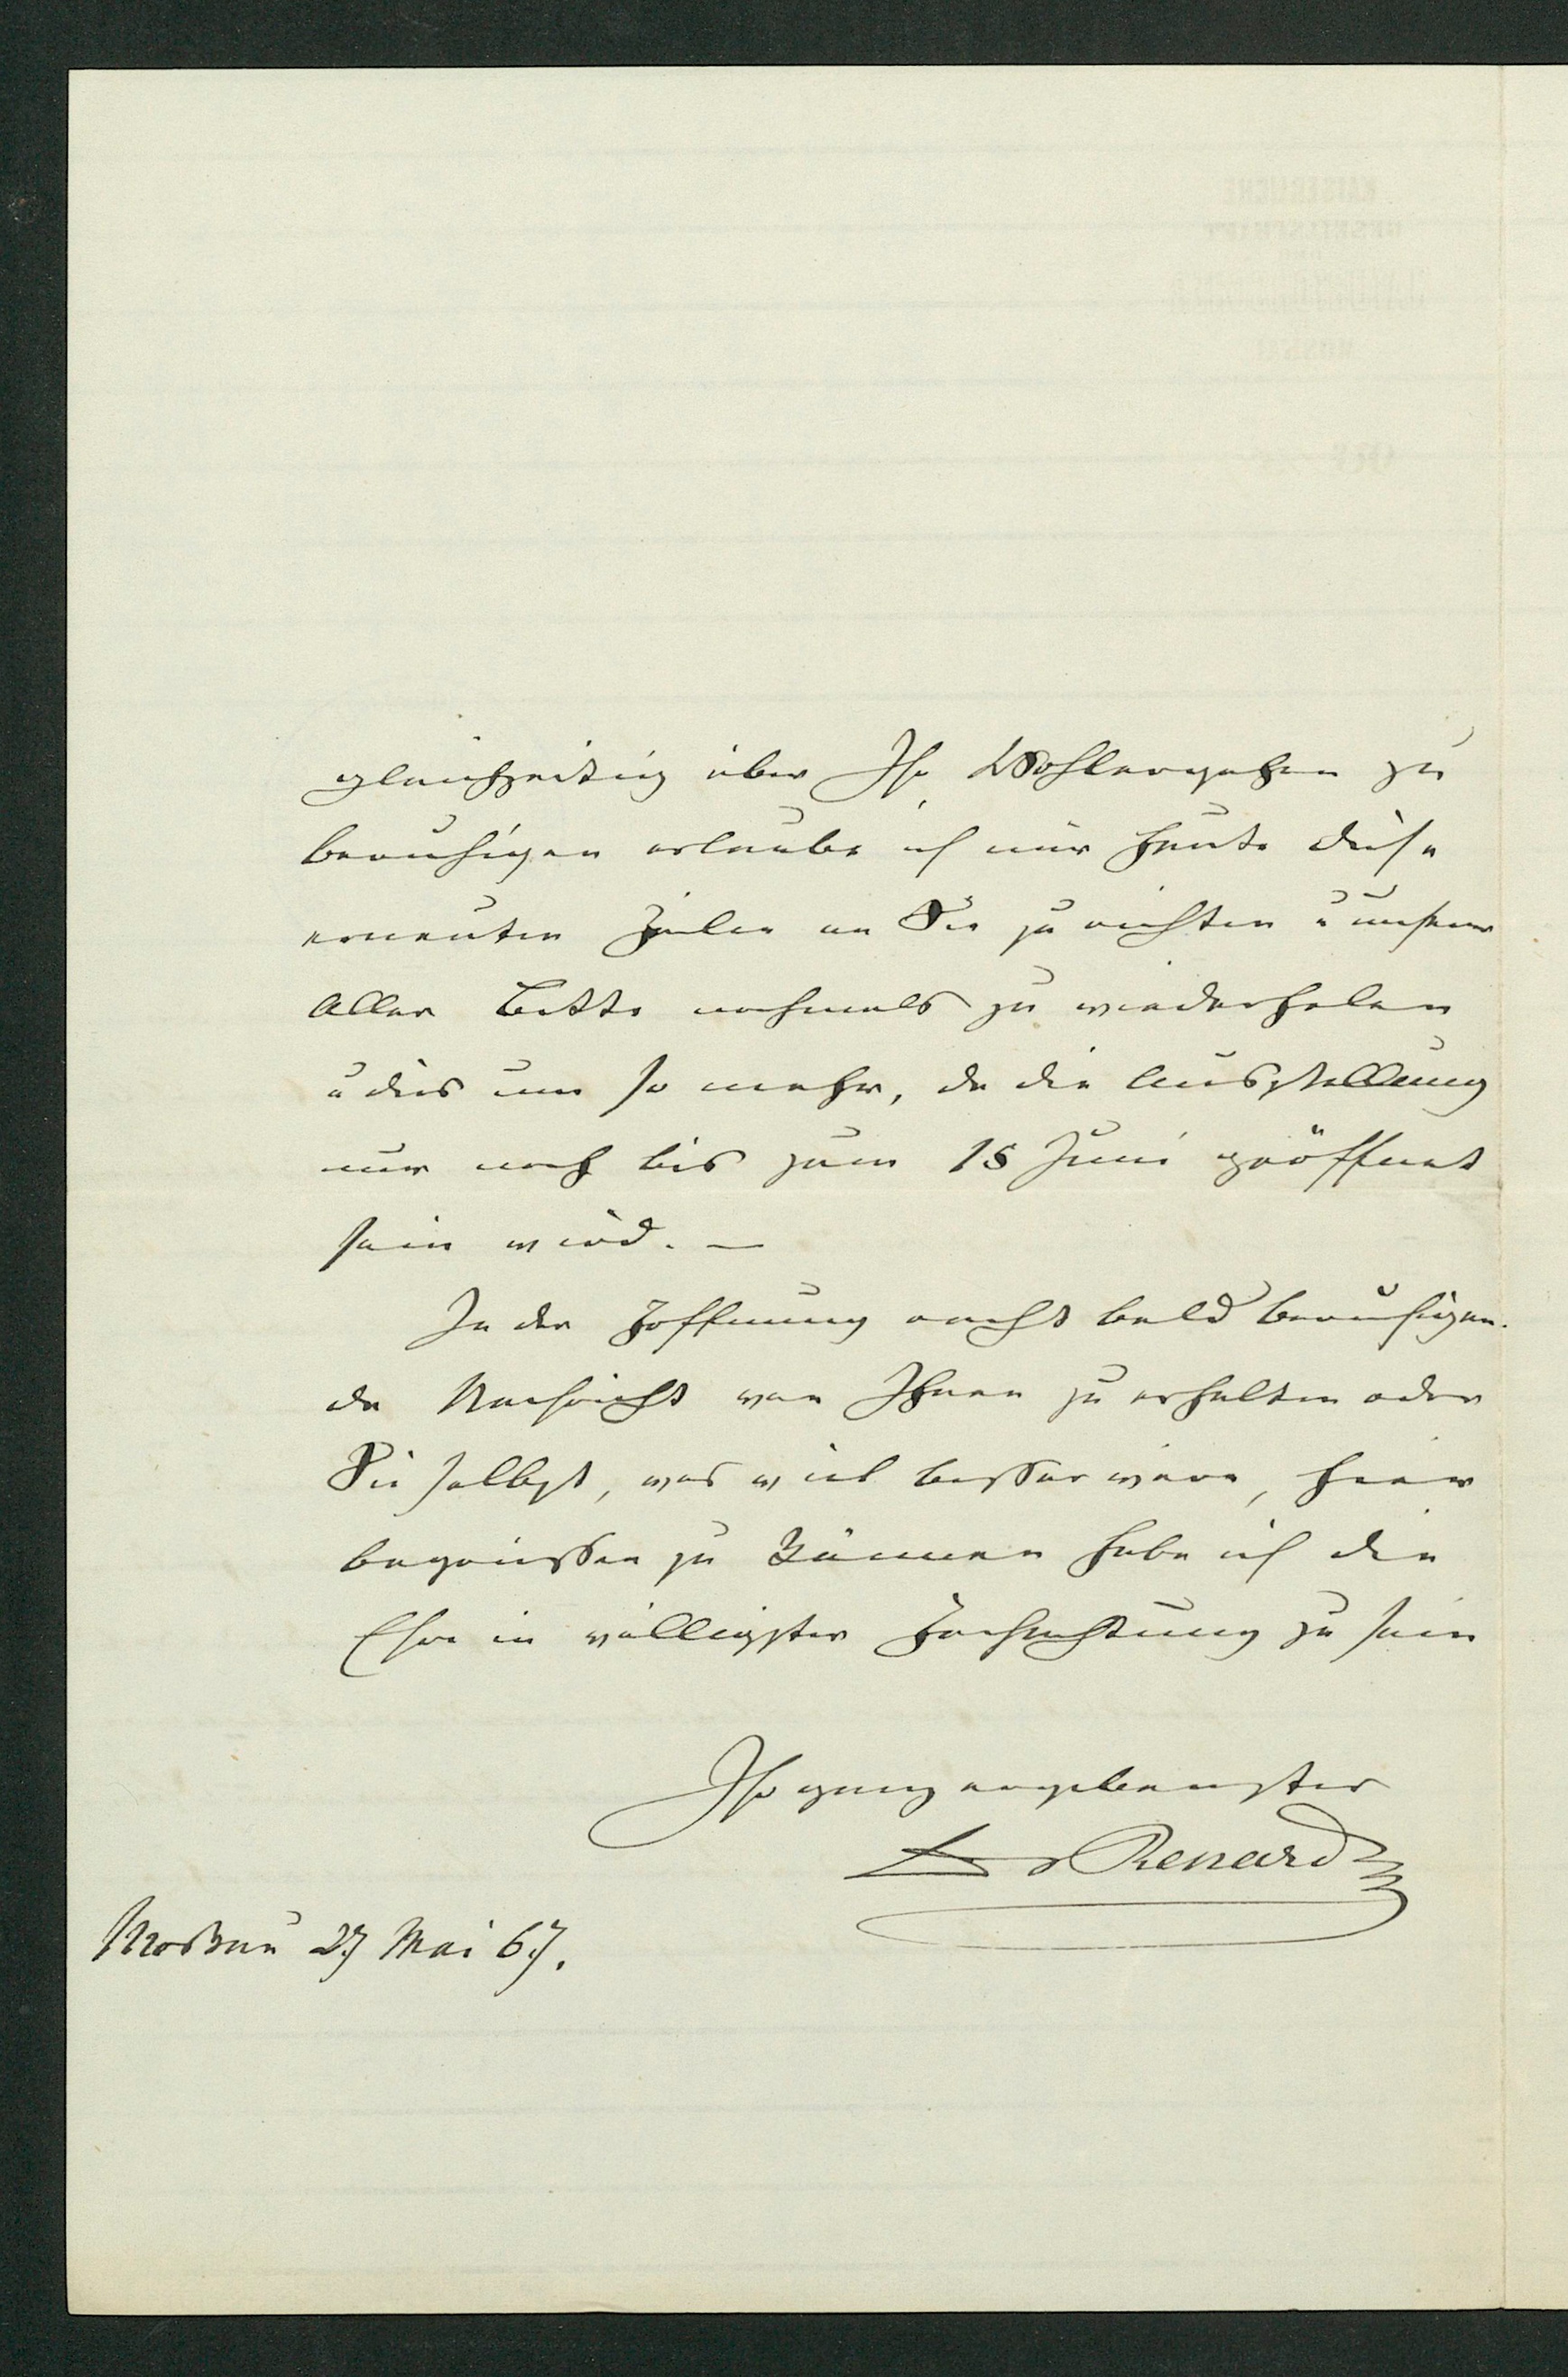 gleichzeitig über Ihr Wohlergehen zu
beruhigen erlaube ich mir heute diese
erneuten Zeilen an Sie zu richten u unsere
Aller Bitte nochmals zu wiederholen
u dies um so mehr, da die Ausstellung
nur noch bis zum 18 Juni geöffnet
sein wird. —
In der Hoffnung recht bald beruhigen-
de Nachricht von Ihnen zu erhalten oder
Sie selbst, was viel besser wäre, hier
begrüssen zu können habe ich die
Ehre in völligster Hochachtung zu sein
Ihr ganz ergebenster
Dr Renard
Moskau 27 Mai 67.